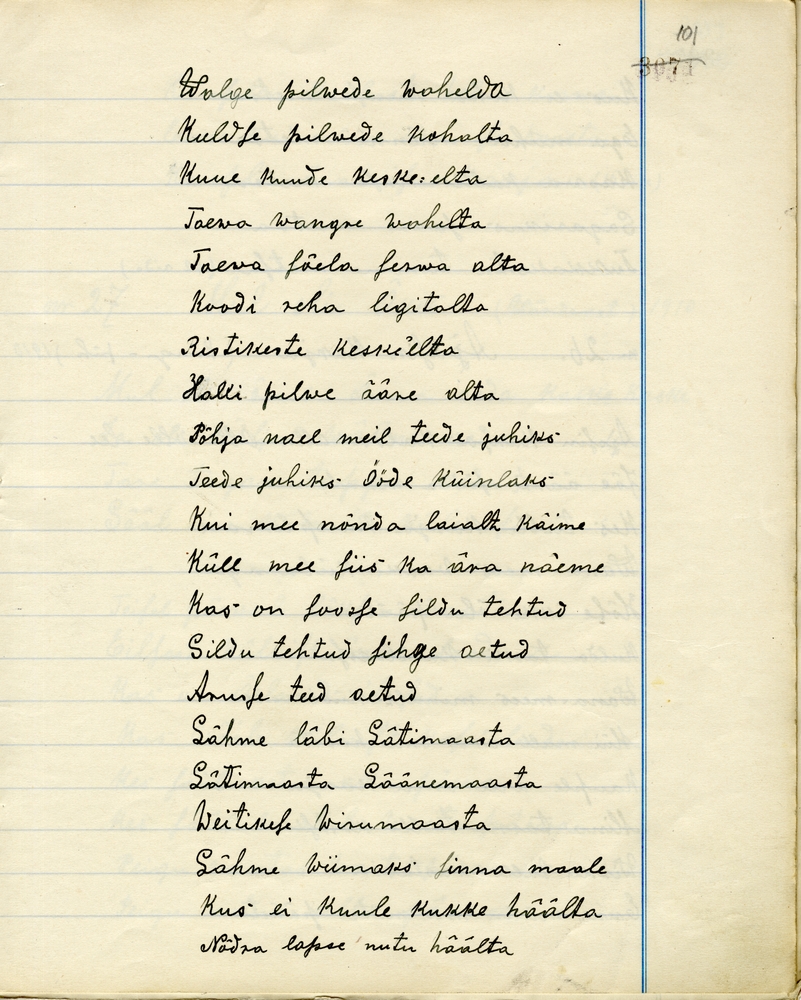 101
3071
Walge pilwede wahelda
Kuldse pilwede kohalta
Kuue kuude keske:elta
Taewa wangre wahelta
Taewa sõela serwa alta
Koodi reha ligitalta
Ristikeste keskielta
Halli pilwe ääre alta
Põhja nael meil teede juhiks
Teede juhiks Ööde küinlaks
Kui mee nõnda laialt käime
Küll mee siis ka ära näeme
Kas on soosse sildu tehtud
Sildu tehtud sihge aetud
Arusse teed aetud
Lähme läbi Lätimaasta
Lätimaasta Läänemaasta
Weitikese Wirumaasta
Lähme Wiimaks sinna maale
Kus ei kuule kukke häälta
Nõdra lapse nutu häälta